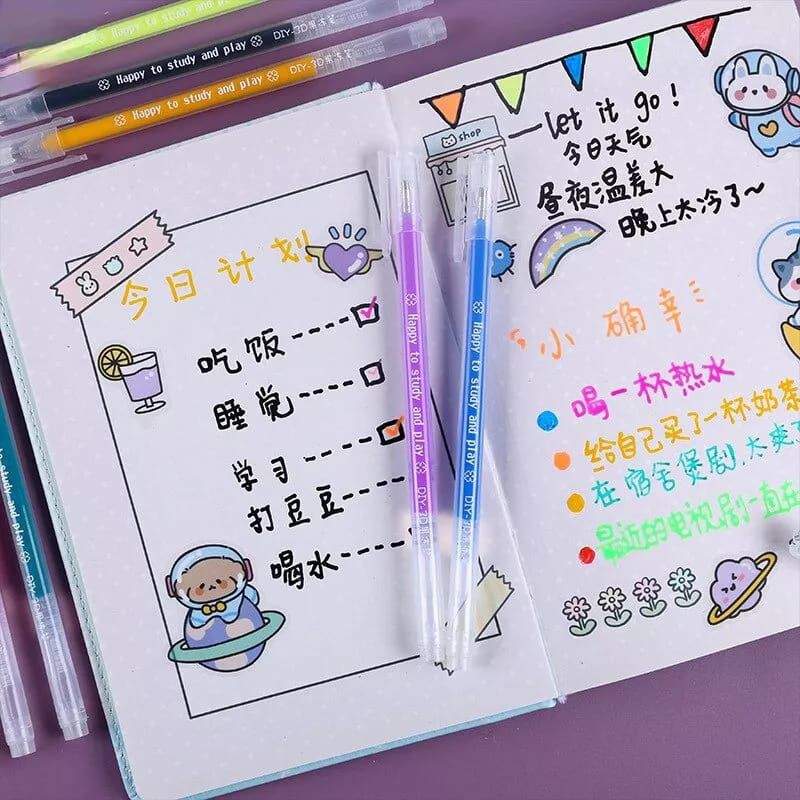 Happy to study and play DIY-3D果冻笔
Happy to study and play DIY-3D果冻笔
Happy to study and play DIY-3D果冻笔
今日计划
吃饭
睡觉
学习
打豆豆
喝水
Happy to study and play DIY-3D果冻笔
Happy to study and play DIY-3D果冻笔
shop
let it go!
今日天气
昼夜温差大
晚上太冷了~
小确幸
喝一杯热水
给自己买了一杯奶茶
在宿舍煲剧,太爽
最近的电视剧一直在
study and play DIY-3D